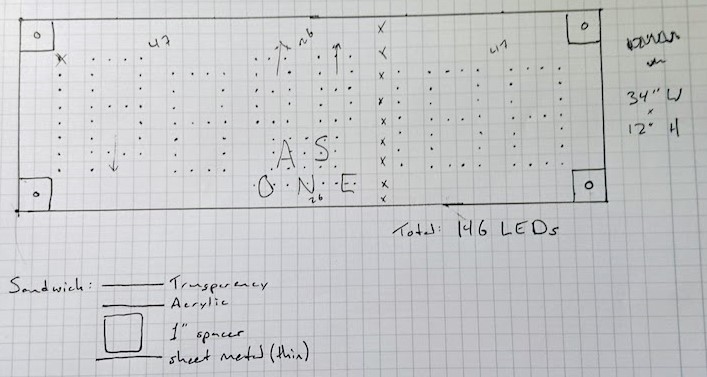 47
26
47
34" W
x
12" H
A S
O N E
26
Total: 146 LEDs
Sandwich:
Transparency
Acrylic
1" spacer
sheet metal (thin)